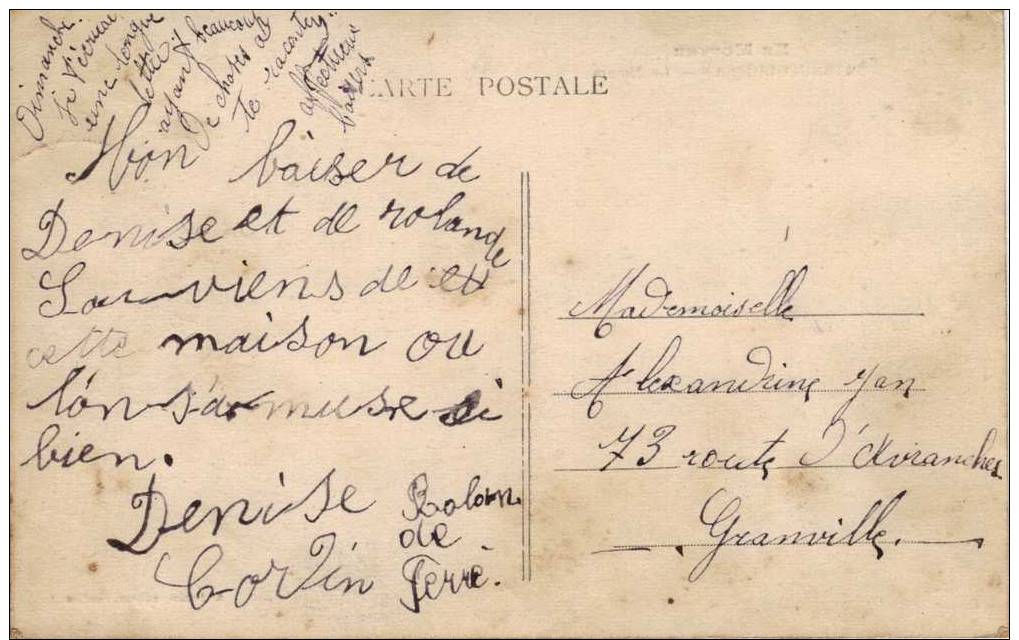 Dimanche.
je t'écrirai
une longue
lettre
ayant beaucoup
de choses à
te raconter
affectueux
baisers
CARTE POSTALE
Mon baiser de
Denise et de rolande
Souviens de
cette maison ou
l'on s'amuse si
bien.
Denise Rolan
de
Cordin Ferré.
Mademoiselle
Alexandrine Yan
73 route d'Avranches
Granville.